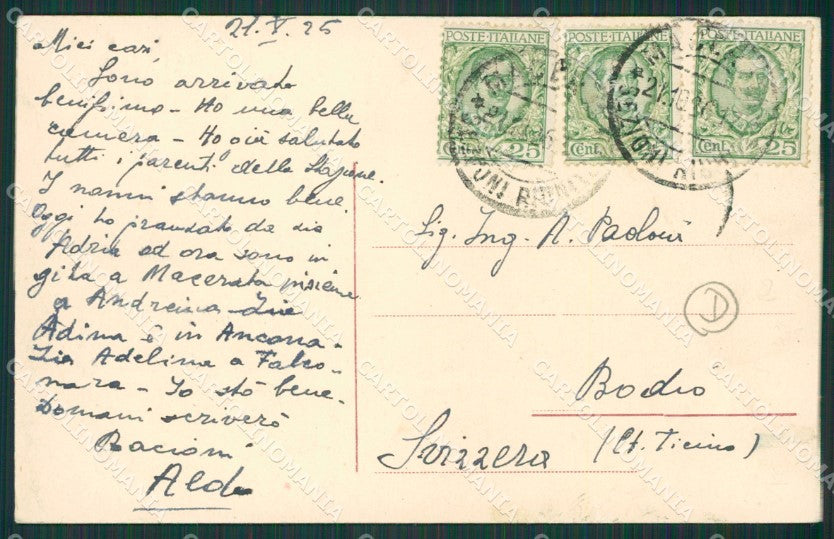 21.V.25
Miei cari,
Sono arrivato
benissimo - Ho una bella
camera - Ho già salutato
tutti i parenti della Stazione.
I nonni stanno bene
Oggi ho pranzato da zia
Adria ed ora sono in
gita a Macerata insieme
a Andreina - Zia
Adima è in Ancona -
Zia Adelina a Falco-
nara - Io stò bene -
Domani scriverò
Bacioni
Aldo
POSTE·ITALIANE
POSTE·ITALIANE
POSTE·ITALIANE
Cent. 25
Cent.
Cent. 25
Sig. Ing. A. Paolini
D
Bodio
Svizzera (Ct. Ticino)
CARTOLINOMANIA